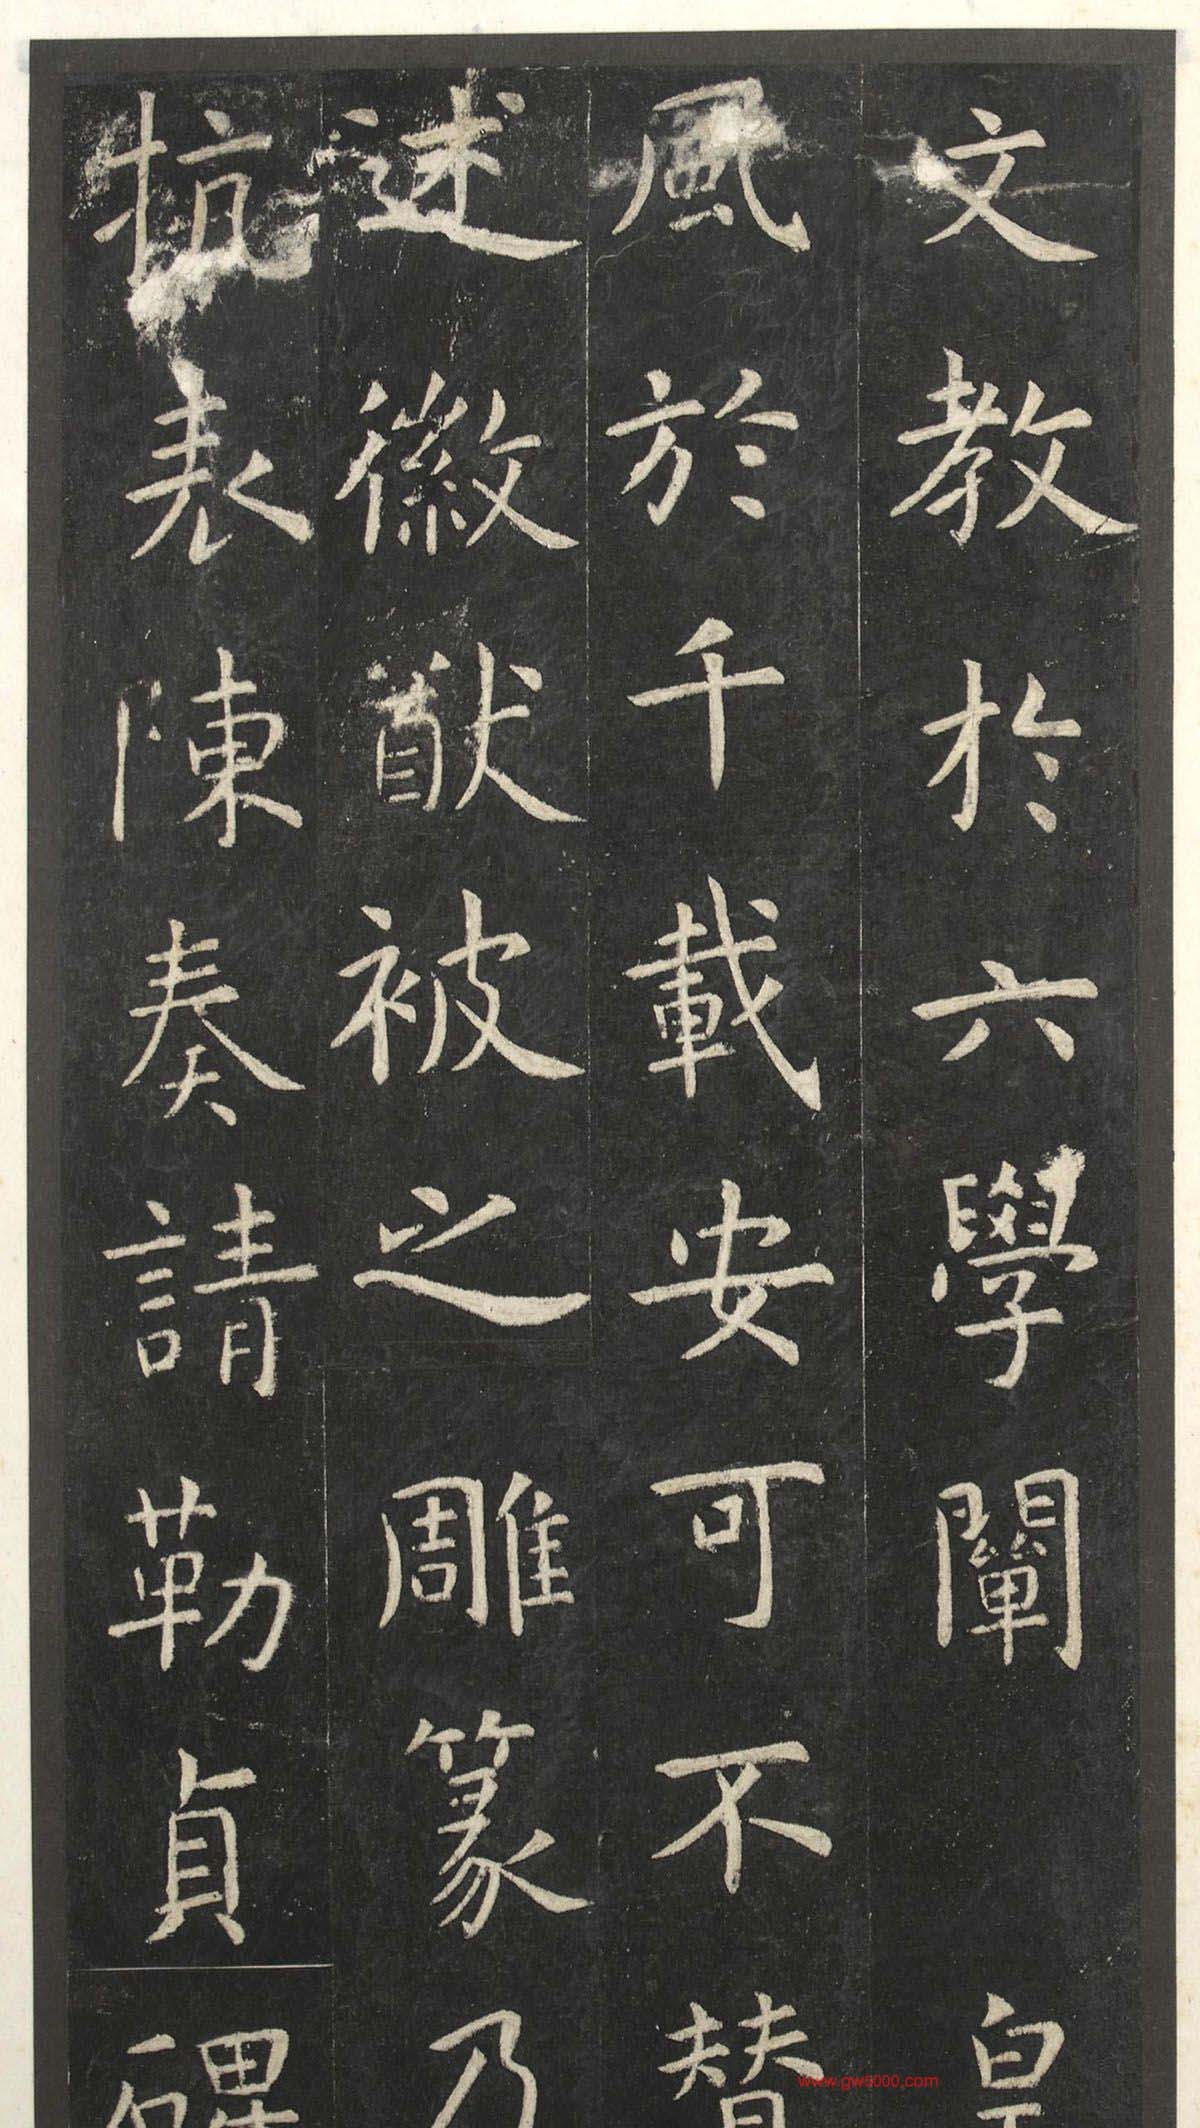 文教於六學闡皇
風於千載安可不賛
述徽猷被之雕篆乃
抗表陳奏請勒貞碑
www.gw5000.com